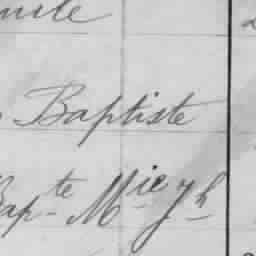 Baptiste
Bap-te Mie Jh